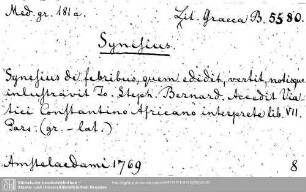 Med. gr. 181 a.
Lit. Graeca B. 5580.
Synesius.
Synesius de febribus, quem edidit, vertit, notisque
inlustravit Io. Steph. Bernard. Accedit Via-
tici Constantino Africano interprete lib. VII.
Pars. (gr. - lat.)
Amstelaedami 1769
8